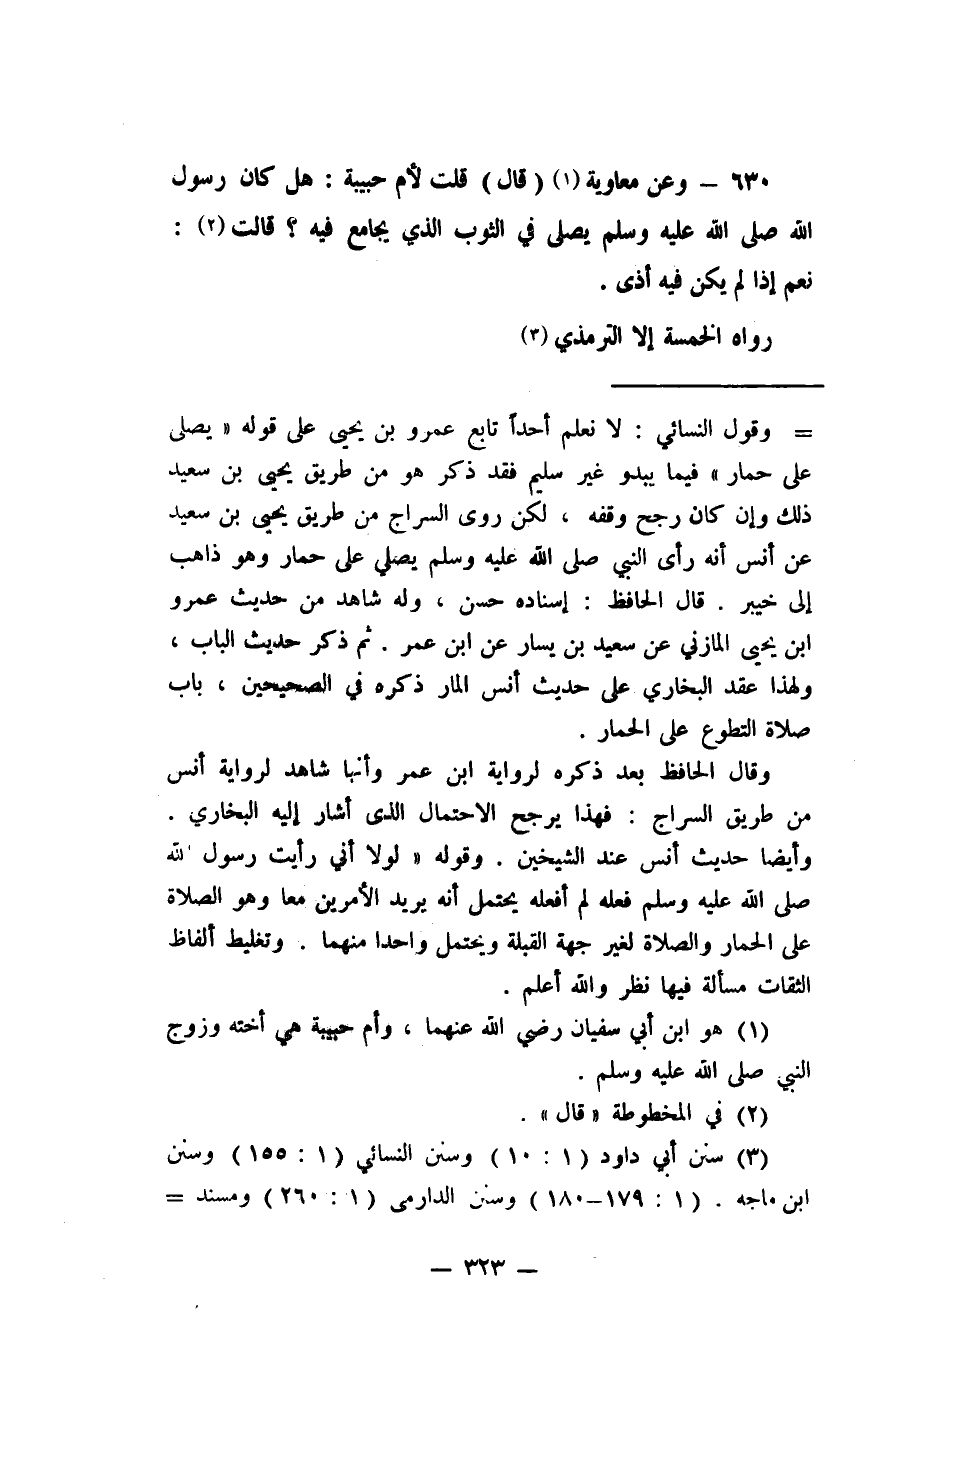 ٦٣٠ – وعن معاوية (١) ( قال ) قلت لأم حبيبة : هل كان رسول
الله صلى الله عليه وسلم يصلى في الثوب الذي يجامع فيه ؟ قالت (٢) :
نعم إذا لم يكن فيه أذى .
رواه الخمسة إلا الترمذي (٣)
= وقول النسائي : لا نعلم أحداً تابع عمرو بن يحيى على قوله « يصلى
على حمار » فيما يبدو غير سليم فقد ذكر هو من طريق يحيى بن سعيد
ذلك وإن كان رجح وقفه ، لكن روى السراج من طريق يحيى بن سعيد
عن أنس أنه رأى النبي صلى الله عليه وسلم يصلي على حمار وهو ذاهب
إلى خيبر . قال الحافظ : إسناده حسن ، وله شاهد من حديث عمرو
ابن يحيى المازني عن سعيد بن يسار عن ابن عمر . ثم ذكر حديث الباب ،
ولهذا عقد البخاري على حديث أنس المار ذكره في الصحيحين ، باب
صلاة التطوع على الحمار .
وقال الحافظ بعد ذكره لرواية ابن عمر وأنها شاهد لرواية أنس
من طريق السراج : فهذا يرجح الاحتمال الذى أشار إليه البخاري .
وأيضا حديث أنس عند الشيخين . وقوله « لولا أني رأيت رسول الله
صلى الله عليه وسلم فعله لم أفعله يحتمل أنه يريد الأمرين معا وهو الصلاة
على الحمار والصلاة لغير جهة القبلة ويحتمل واحدا منهما . وتغليط ألفاظ
الثقات مسألة فيها نظر والله أعلم .
(١) هو ابن أبي سفيان رضي الله عنهما ، وأم حبيبة هي أخته وزوج
النبي صلى الله عليه وسلم .
(٢) في المخطوطة « قال » .
(٣) سنن أبي داود ( ١ : ١٠٠ ) وسنن النسائي ( ١ : ١٥٥ ) وسنن
ابن ماجه . ( ١ : ١٧٩–١٨٠ ) وسنن الدارمى ( ١ : ٢٦٠ ) ومسند =
— ٣٢٣ —